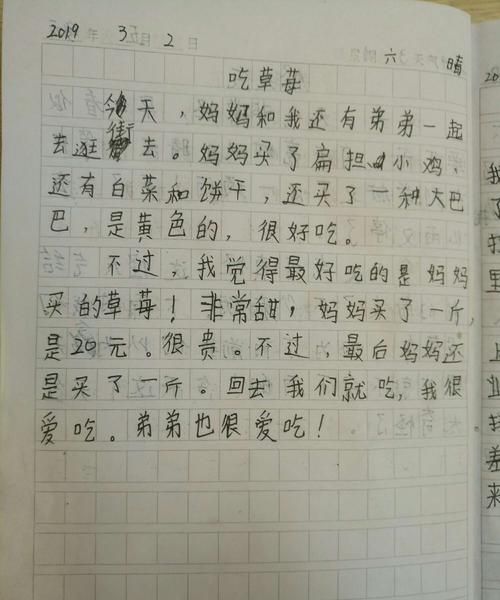 2019 3 2 日 六 晴
吃草莓
今天，妈妈和我还有弟弟一起
去逛街去。妈妈买了扁担、小鸡、
还有白菜和饼干，还买了一种大巴
巴，是黄色的，很好吃。
不过，我觉得最好吃的是妈妈
买的草莓！非常甜，妈妈买了一斤，
是20元。很贵。不过，最后妈妈还
是买了一斤。回去我们就吃，我很
爱吃。弟弟也很爱吃！